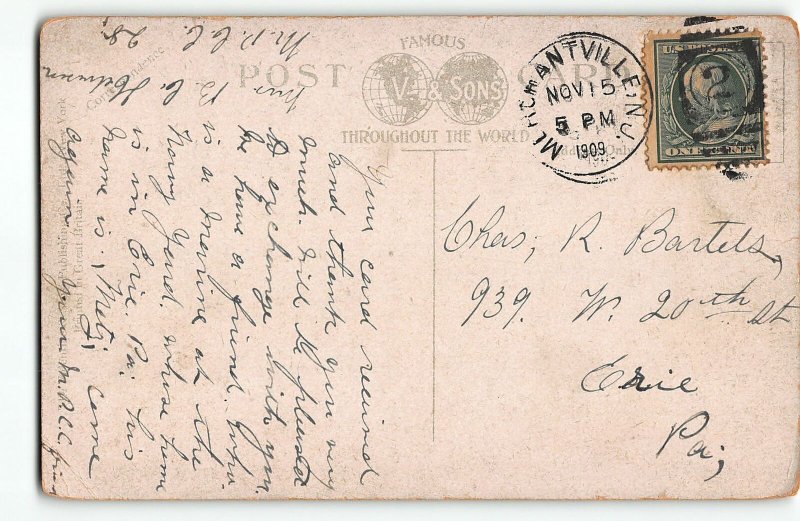 FAMOUS
POST CARD
V. & SONS
THROUGHOUT THE WORLD
Correspondence
Address Only
MERCHANTVILLE, N.J.
NOV 15
5 PM
1909
2
U.S. POSTAGE
ONE CENT
Chas, R. Bartels,
939. W. 20th St
Erie
Pa;
Your card received
and thank you very
much. Will be pleased
to exchange with you.
We have a friend. Who
is a marine at the
Navy Yard. whose home
is in Erie. Pa; his
name is, Metz, come
again your M.P.C.C. friend
M. P. C. C. 28.
Printed in Great Britain